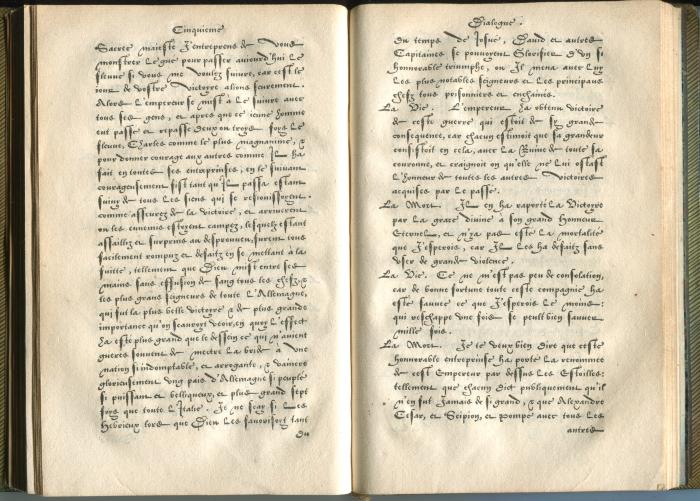 Cinquieme
Sacree maieste J'entreprens de vous
monstrer le gué pour passer aujourd'hui le
fleuve si vous me voulez suivre, car cest le
iour de vostre victoire allons seurement.
Alors l'empereur se mist à le suivre avec
tous ses gens, et apres que ce ieune homme
eut passé et repassé deux ou troys foys le
fleuve, Charles comme le plus magnanime, &
pour donner courage aux autres comme Jl ha
fait en toutes ses entreprinses, en le suivant
courageusement fist tant qu'Jl passa estant
suivy de tous les siens qui se resiouissoyent
comme asseurez de la victoire, et arriverent
ou les ennemis estoyent campez, lesquelz estant
assailliz et surprins au despourveu, furent tous
facilement rompuz et defaitz en se mettant à la
fuitte, tellement que Dieu mist entre ses
mains sans effusion de sang tous les chefz &
les plus grand seigneurs de toute l'Allemagne,
qui fut la plus belle victoire & de plus grande
importance qu'on scauroyt veoir, en quoy l'effect
ha esté plus grand que le dessein et qui n'avient
gueres souvent de mectre la bride à une
nation si indomptable, et arrogante, & vaincre
glorieusement ung pais d'Allemagne si peuplé
si puissant et belliqueux, et plus grand sept
foys que toute l'Italie. Je ne scay si les
Hebrieux lors que Dieu les favorisoit tant
du
Dialogue.
Du temps de Josué, David et autres
Capitaines se pouvoyent Glorifier d'un si
honnorable triumphe, ou Jl mena avec luy
les plus notables seigneurs et les principaux
chefz tous prisonniers et enchainez.
La Vie. L'empereur ha obtenu victoire
de ceste guerre qui estoit de sy grande
consequence, car chacun estimoit que sa grandeur
consistoit en cela, avec la Ruine de toute sa
couronne, et craignoit on qu'elle ne lui ostast
l'honneur de toutes les autres victoires
acquises par le passé.
La Mort. Jl en ha raporté la Victoyre
par la grace divine à son grand honneur
Eternel, et n'y ha pas esté la mortalité
que J'esperois, car Jl les ha defaitz sans
user de grande violence.
La Vie. Ce ne m'est pas peu de consolation,
car de bonne fortune toute ceste compagnie ha
esté sauvee ce que J'esperois le moins:
qui reschappe une fois se peult bien sauver
mille fois.
La Mort. Je te veux bien dire que ceste
honnorable entreprinse ha porté la renommee
de cest Empereur par dessus les Estoilles:
tellement que chacun dict publiquement qu'il
n'en fut Jamais de si grand, & que Alexandre
Cesar, et Scipion, et Pompee avec tous les
autres